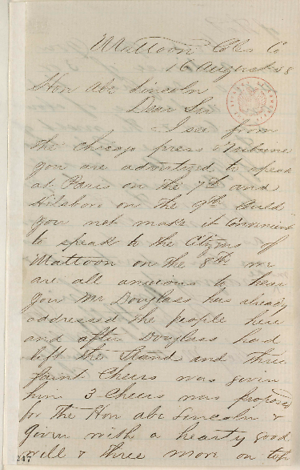 Mattoon Coles Co
16 August 58
Hon Abr Lincoln
Dear Sir
I see from
the Chicago press & Tribune
you are advertized to speak
at Paris on the 7th and
Hilsboro on the 9th Could
you not make it Convenient
to speak to the Citizens of
Mattoon on the 8th we
are all anxious to hear
you Mr Douglass has already
addressed the people here
and after Douglass had
left the Stand and three
faint Cheers was given
him 3 Cheers was proposed
for the Hon Abr Lincoln &
given with a hearty good
will & three more on top